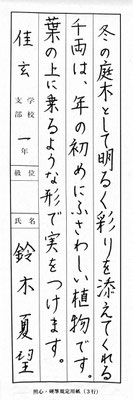 冬の庭木として明るく彩りを添えてくれる
千両は、年の初めにふさわしい植物です。
葉の上に乗るような形で実をつけます。
佳玄 学校 支部 一年 級位 氏名 鈴木夏望
担心・硬筆規定用紙（3行）